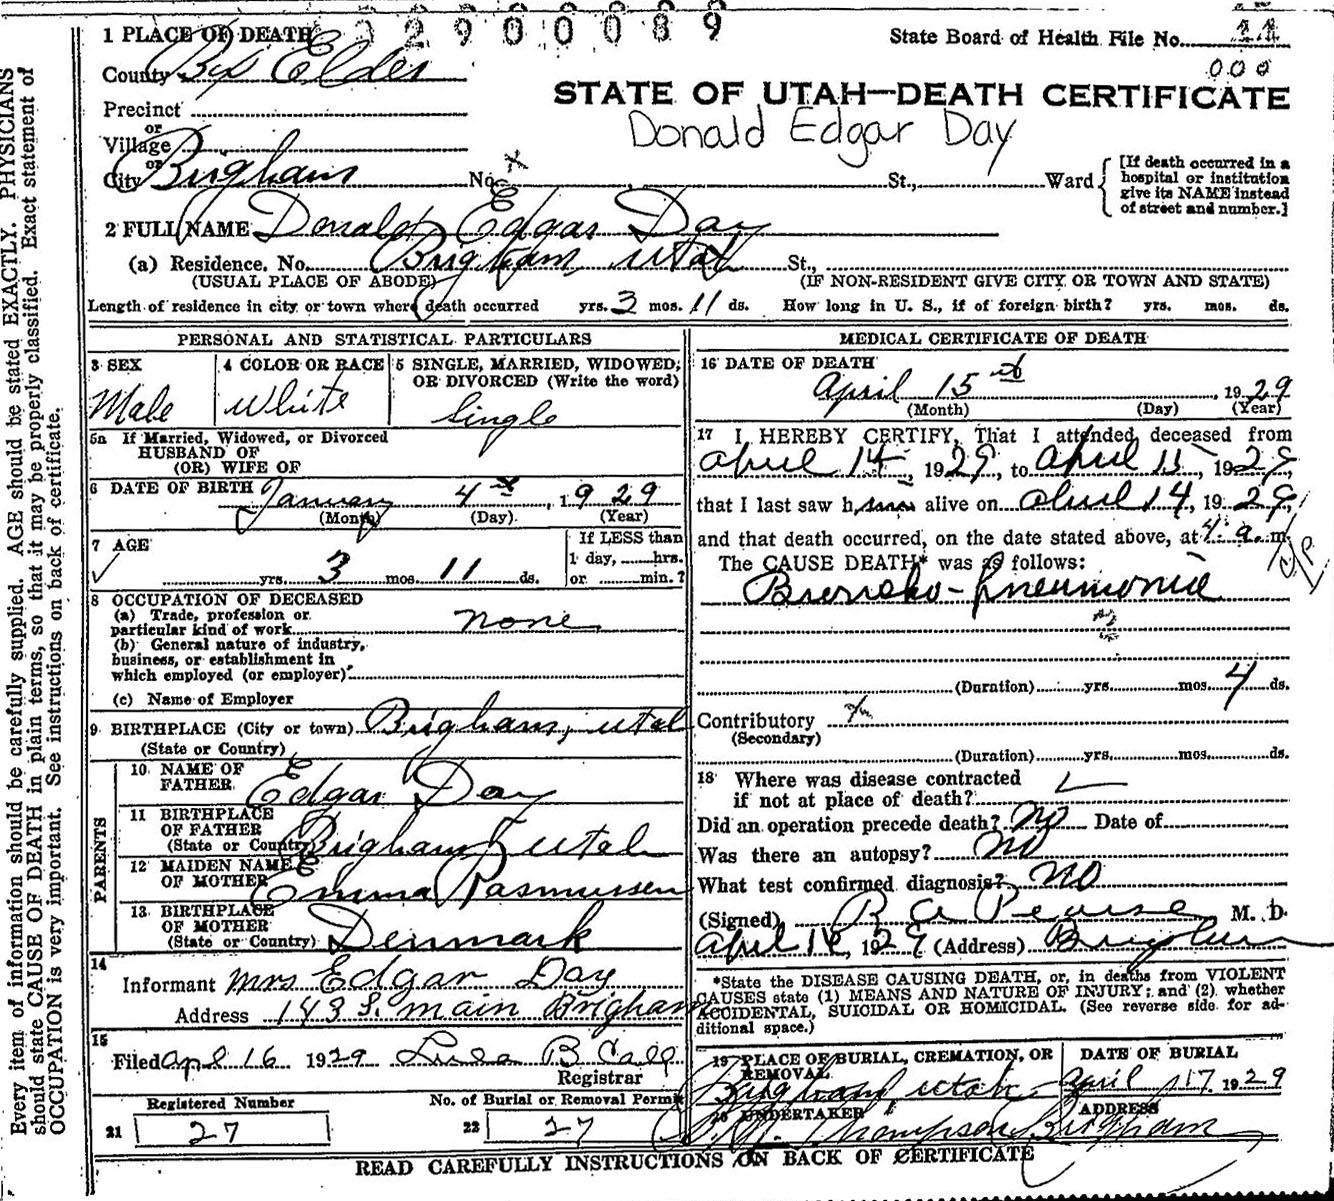 32900089
1 PLACE OF DEATH
State Board of Health File No. 11
000
County Box Elder
STATE OF UTAH—DEATH CERTIFICATE
Precinct
Donald Edgar Day
or
Village
or
City Brigham No. St., Ward
[If death occurred in a
hospital or institution
give its NAME instead
of street and number.]
2 FULL NAME Donald Edgar Day
(a) Residence. No. Brigham, Utah St.,
(USUAL PLACE OF ABODE) (IF NON-RESIDENT GIVE CITY OR TOWN AND STATE)
Length of residence in city or town where death occurred yrs. 3 mos. 11 ds. How long in U. S., if of foreign birth? yrs. mos. ds.
PERSONAL AND STATISTICAL PARTICULARS
3 SEX
Male
4 COLOR OR RACE
White
5 SINGLE, MARRIED, WIDOWED,
OR DIVORCED (Write the word)
Single
5a If Married, Widowed, or Divorced
HUSBAND OF
(OR) WIFE OF
6 DATE OF BIRTH January 4th, 1929
(Month) (Day) (Year)
7 AGE
yrs. 3 mos. 11 ds.
If LESS than
1 day, hrs.
or min.?
8 OCCUPATION OF DECEASED
(a) Trade, profession or
particular kind of work none
(b) General nature of industry,
business, or establishment in
which employed (or employer)
(c) Name of Employer
9 BIRTHPLACE (City or town) Brigham, Utah
(State or Country)
PARENTS
10 NAME OF
FATHER Edgar Day
11 BIRTHPLACE
OF FATHER
(State or Country) Brigham Utah
12 MAIDEN NAME
OF MOTHER Emma Rasmussen
13 BIRTHPLACE
OF MOTHER
(State or Country) Denmark
14
Informant Mrs Edgar Day
Address 143 S. Main Brigham
15
Filed Apr 16 1929 B Call
Registrar
Registered Number
21 27
No. of Burial or Removal Permit
22 27
MEDICAL CERTIFICATE OF DEATH
16 DATE OF DEATH
April 15th, 1929
(Month) (Day) (Year)
17 I HEREBY CERTIFY, That I attended deceased from
April 14, 1929, to April 15, 1929,
that I last saw him alive on April 14, 1929,
and that death occurred, on the date stated above, at 4 a. m.
The CAUSE DEATH* was as follows:
Broncho-pneumonia
(Duration) yrs. mos. 4 ds.
Contributory
(Secondary)
(Duration) yrs. mos. ds.
18 Where was disease contracted
if not at place of death?
Did an operation precede death? No Date of
Was there an autopsy? No
What test confirmed diagnosis? No
(Signed) R A Pearse M. D.
April 16, 1929 (Address) Brigham
*State the DISEASE CAUSING DEATH, or, in deaths from VIOLENT
CAUSES state (1) MEANS AND NATURE OF INJURY; and (2) whether
ACCIDENTAL, SUICIDAL OR HOMICIDAL. (See reverse side for ad-
ditional space.)
19 PLACE OF BURIAL, CREMATION, OR
REMOVAL
Brigham, Utah
DATE OF BURIAL
April 17 1929
20 UNDERTAKER
Thompson
ADDRESS
Brigham
READ CAREFULLY INSTRUCTIONS ON BACK OF CERTIFICATE
Every item of information should be carefully supplied. AGE should be stated EXACTLY. PHYSICIANS
should state CAUSE OF DEATH in plain terms, so that it may be properly classified. Exact statement of
OCCUPATION is very important. See instructions on back of certificate.